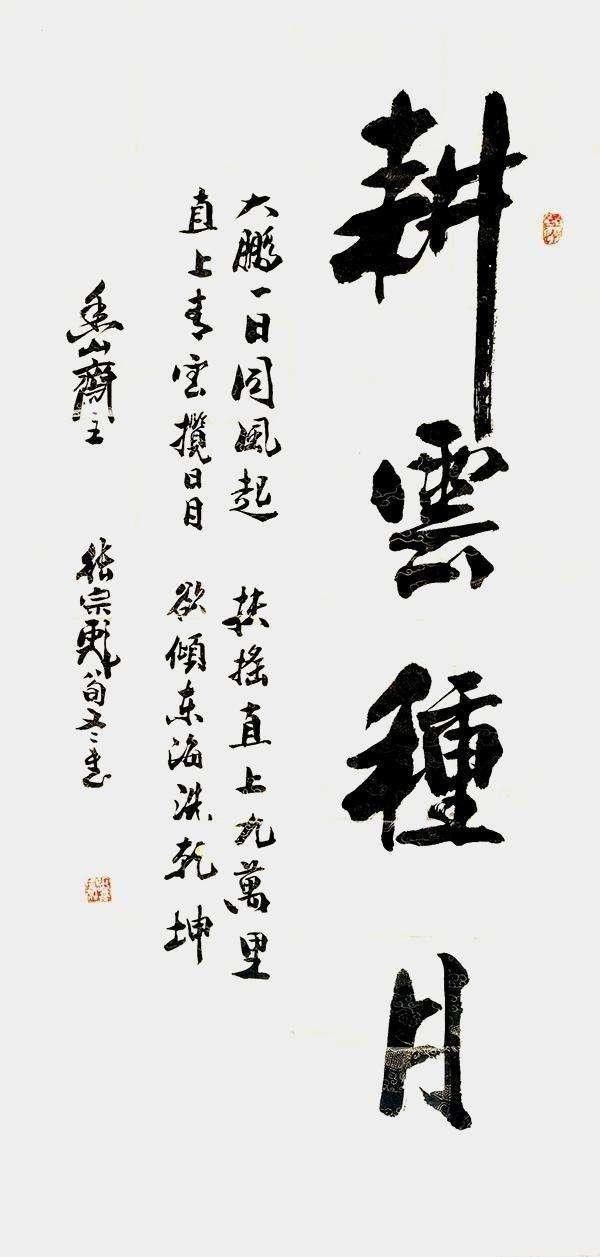 耕雲種月
大鵬一日同風起 扶搖直上九萬里
直上青雲攬日月 欲傾東海洗乾坤
山齋主 張宗 八旬 書